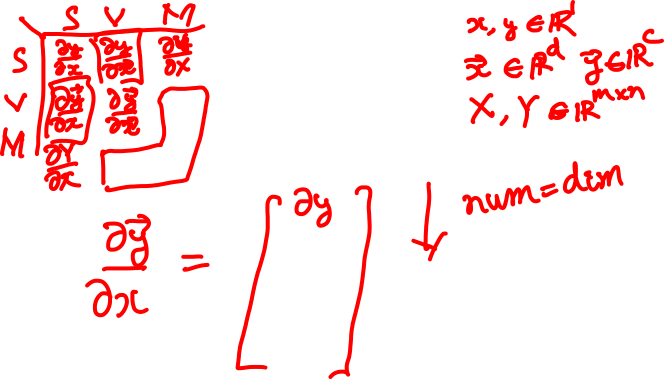 S V M
S ∂y/∂x ∂y/∂x⃗ ∂y/∂X
V ∂y⃗/∂x ∂y⃗/∂x⃗
M ∂Y/∂x
x, y ∈ ℝ¹
x⃗ ∈ ℝᵈ y⃗ ∈ ℝᶜ
X, Y ∈ ℝᵐˣⁿ
∂y⃗/∂x = [ ∂y ] ↓ num = dim